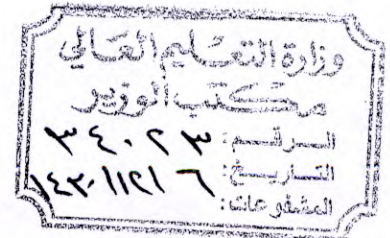 وزارة التعليم العالي
مكتب الوزير
الرقم: ٣٤٠٢٣
التاريخ: ١٤٣٠/١٢/٦
المشفوعات: